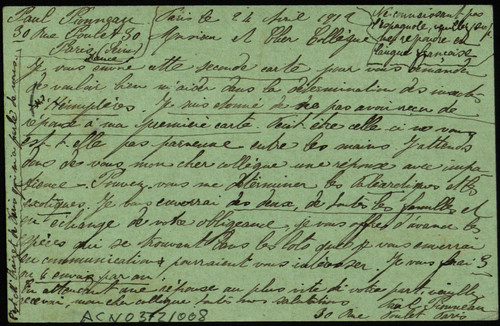 Paul Pionneau
30 Rue Poulet 30
Paris (Paris)
France
Paris le 24 Avril 1912
Monsieur et Cher Collègue
Ne connaissant pas
l'espagnol, veuillez
me répondre en
langue française
Je vous envoie cette seconde carte pour vous demander
de vouloir bien m'aider dans la détermination des insectes
Je suis étonné de ne pas avoir reçu de
réponse à ma première carte. Peut être celle ci ne vous
est-elle pas parvenue entre les mains. J'attends
donc de vous, mon cher collègue une réponse avec impa
tience. Pouvez vous me déterminer les paléarctiques et les
exotiques. Je vous enverrai des deux, de toutes les familles et
en échange de votre obligeance, je vous offre d'avance les
espèces qui se trouvent dans les lots que je vous enverrai
en communication, pourraient vous intéresser. Je vous ferai 5
ou 6 envois par an.
En attendant une réponse au plus vite de votre part veuillez
recevoir, mon cher collègue toutes mes salutations
Paul Pionneau
30 Rue Poulet Paris
ACN0372/008